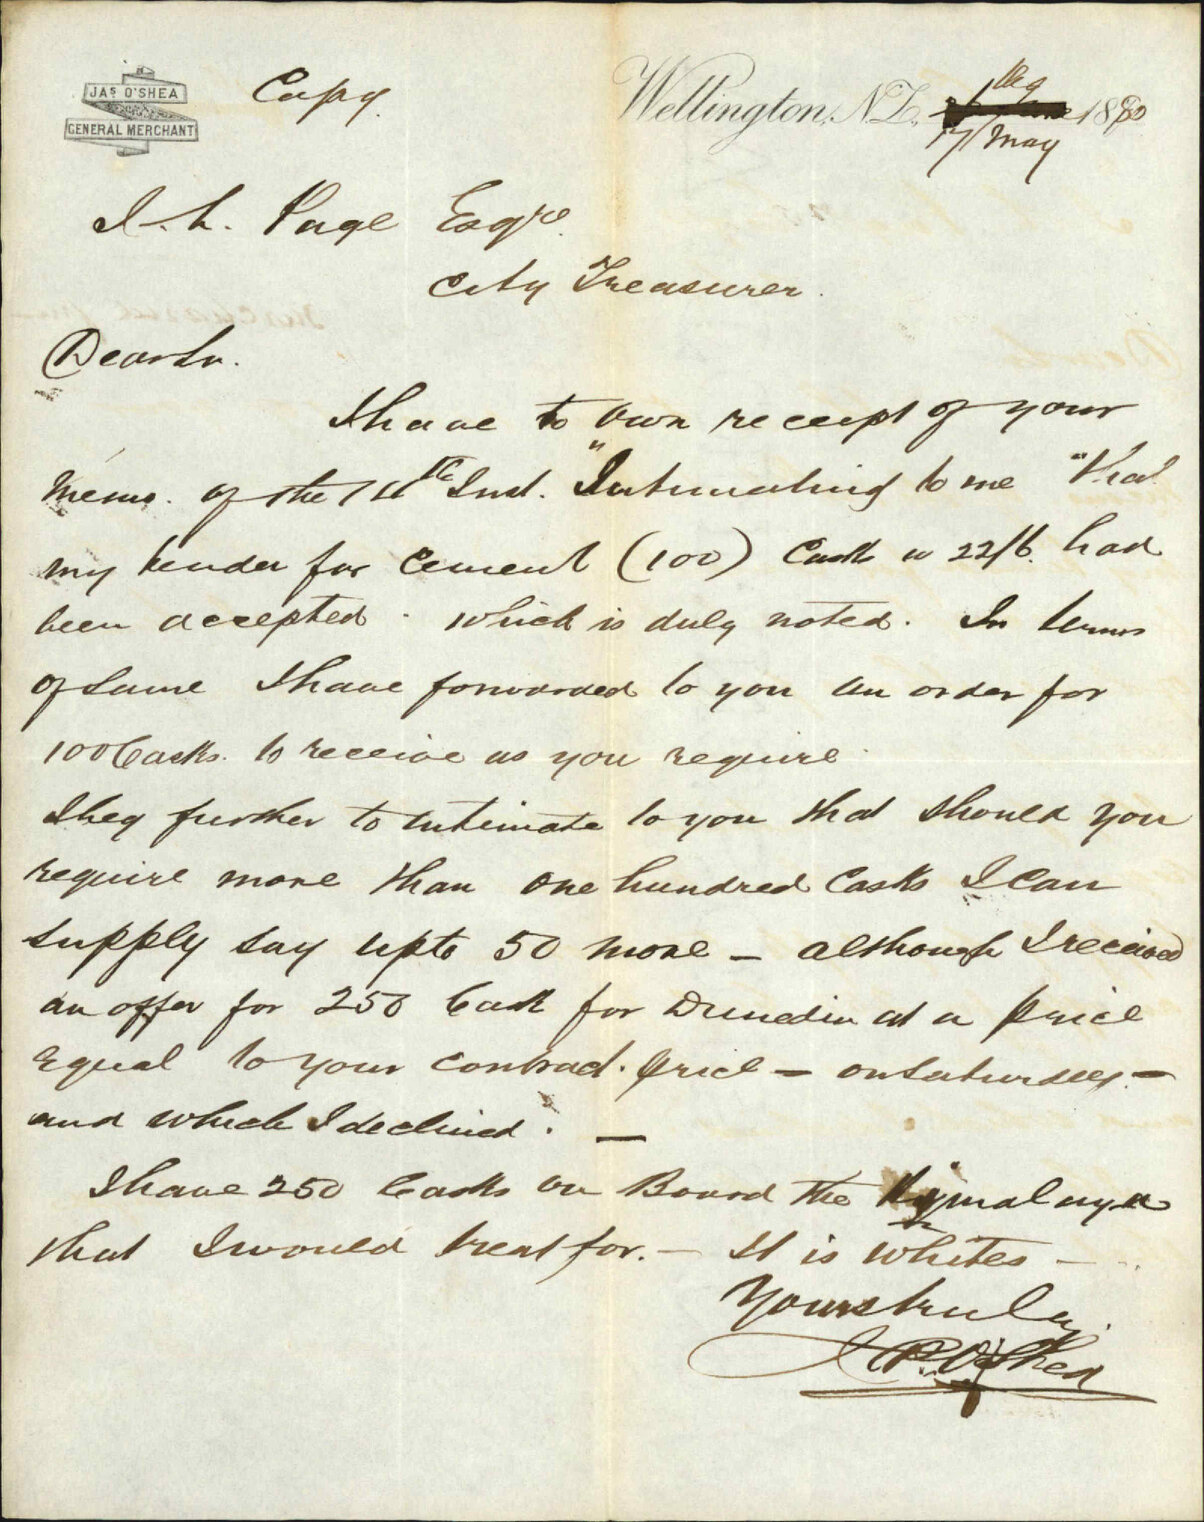 JAS O'SHEA
GENERAL MERCHANT
Copy.
Wellington, N.Z., 1880
17 May
J. L. Page Esqre.
City Treasurer.
Dear Sr.
I have to own receipt of your
memo. of the 14th Inst. "Intimating to me "that
my tender for cement (100) Casks @ 22/6. had
been accepted. which is duly noted. In terms
of same I have forwarded to you an order for
100 Casks. to receive as you require.
I beg further to intimate to you that should you
require more than one hundred Casks I can
supply say upto 50 more – although I received
an offer for 250 Cask for Dunedin at a price
Equal to your contract. price – on Saturday –
and which I declined. –
I have 250 Casks on Board the Hymalaya
that I would treat for. – It is Whites –
Yours truly.
J P. O'Shea